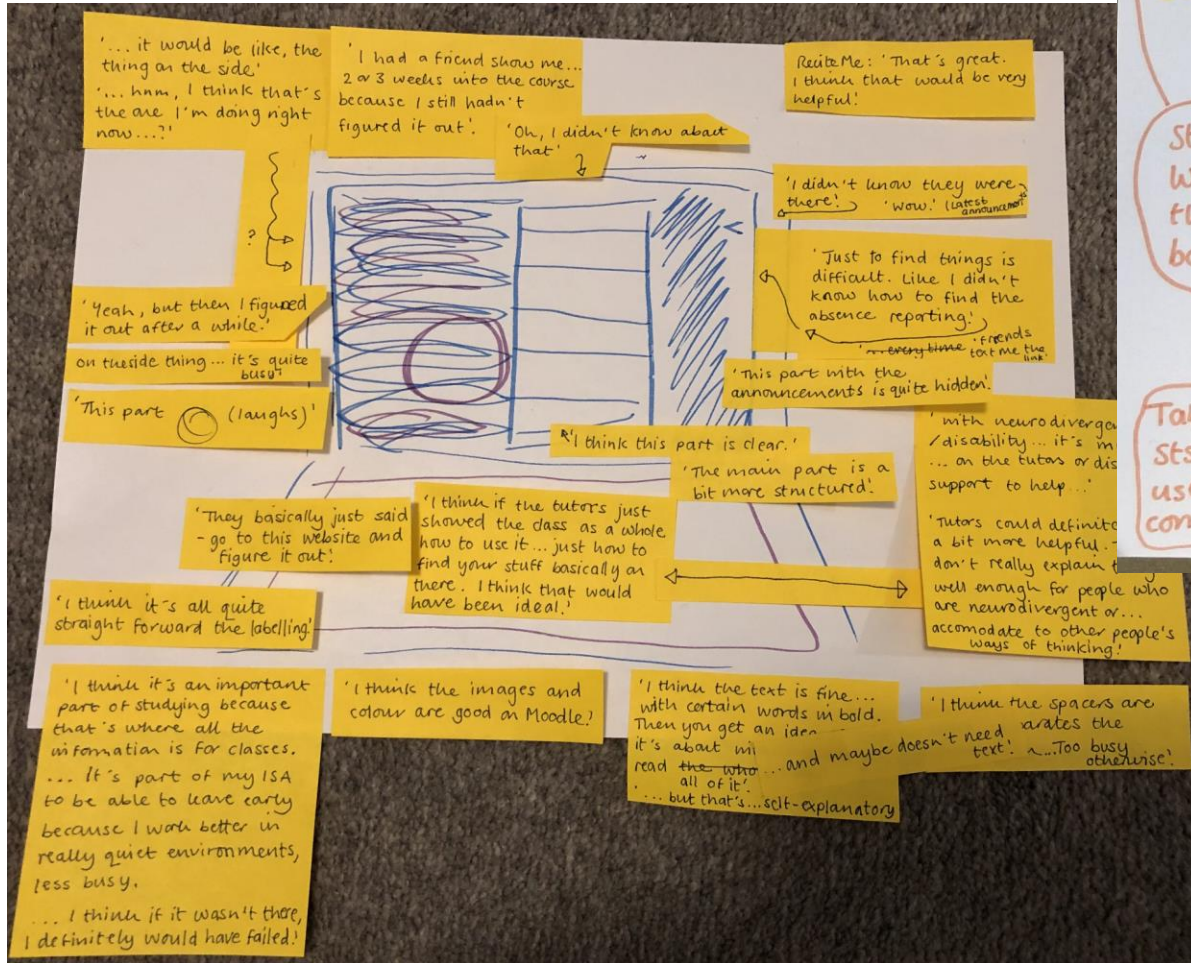 '... it would be like, the
thing on the side.'
'... hnm, I think that's
the one I'm doing right
now...?'
?
'I had a friend show me...
2 or 3 weeks into the course
because I still hadn't
figured it out'.
'Oh, I didn't know about
that'
Recite Me: 'That's great.
I think that would be very
helpful.'
'I didn't know they were
there!' 'Wow.' (latest
announcement
'Just to find things is
difficult. Like I didn't
know how to find the
absence reporting!'
every time 'friends
text me the
link.'
'This part with the
announcements is quite hidden.'
'Yeah, but then I figured
it out after a while.'
on the side thing... it's quite
busy.'
'This part (laughs)'
'I think this part is clear.'
'The main part is a
bit more structured.'
'with neurodiverge
/disability... it's m
... on the tutors or dis
support to help...'
'Tutors could definit
a bit more helpful.
don't really explain t
well enough for people who
are neurodivergent or...
accomodate to other people's
ways of thinking.'
'They basically just said
- go to this website and
figure it out.'
'I think if the tutors just
showed the class as a whole
how to use it... just how to
find your stuff basically on
there. I think that would
have been ideal.'
'I think it's all quite
straight forward the labelling.'
'I think it's an important
part of studying because
that's where all the
information is for classes.
... It's part of my ISA
to be able to leave early
because I work better in
really quiet environments,
less busy.
... I think if it wasn't there,
I definitely would have failed.'
'I think the images and
colour are good on Moodle.'
'I think the text is fine...
with certain words in bold.
Then you get an idea
it's about
read the who
all of it'.
... but that's... self-explanatory
... and maybe doesn't need
'I think the spacers are
arates the
text! ... Too busy
otherwise.'
St
W
th
bo
Tal
Sts
us
con